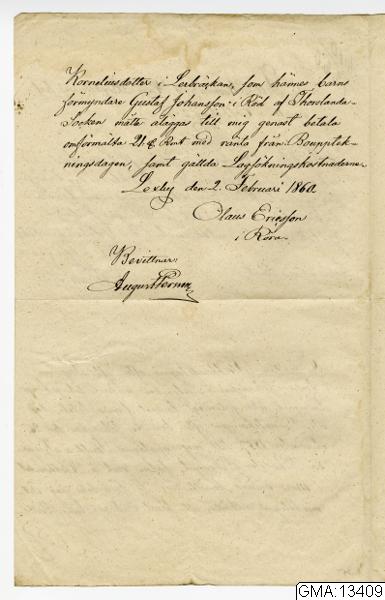 Korneliusdotter i Lerbräckan, som hännes barns
förmyndare Gustaf Johansson i Röd af Thorslanda-
Socken måtte åläggas till mig genast betala
omförmälta 21 Rmt med ränta från Bouppteck-
ningsdagen, samt gällda Lagsökningskostnaderne.
Lexby den 2. Februari 1860.
Claus Ericsson
i Röra.
Bevittnar:
August
GMA:13409